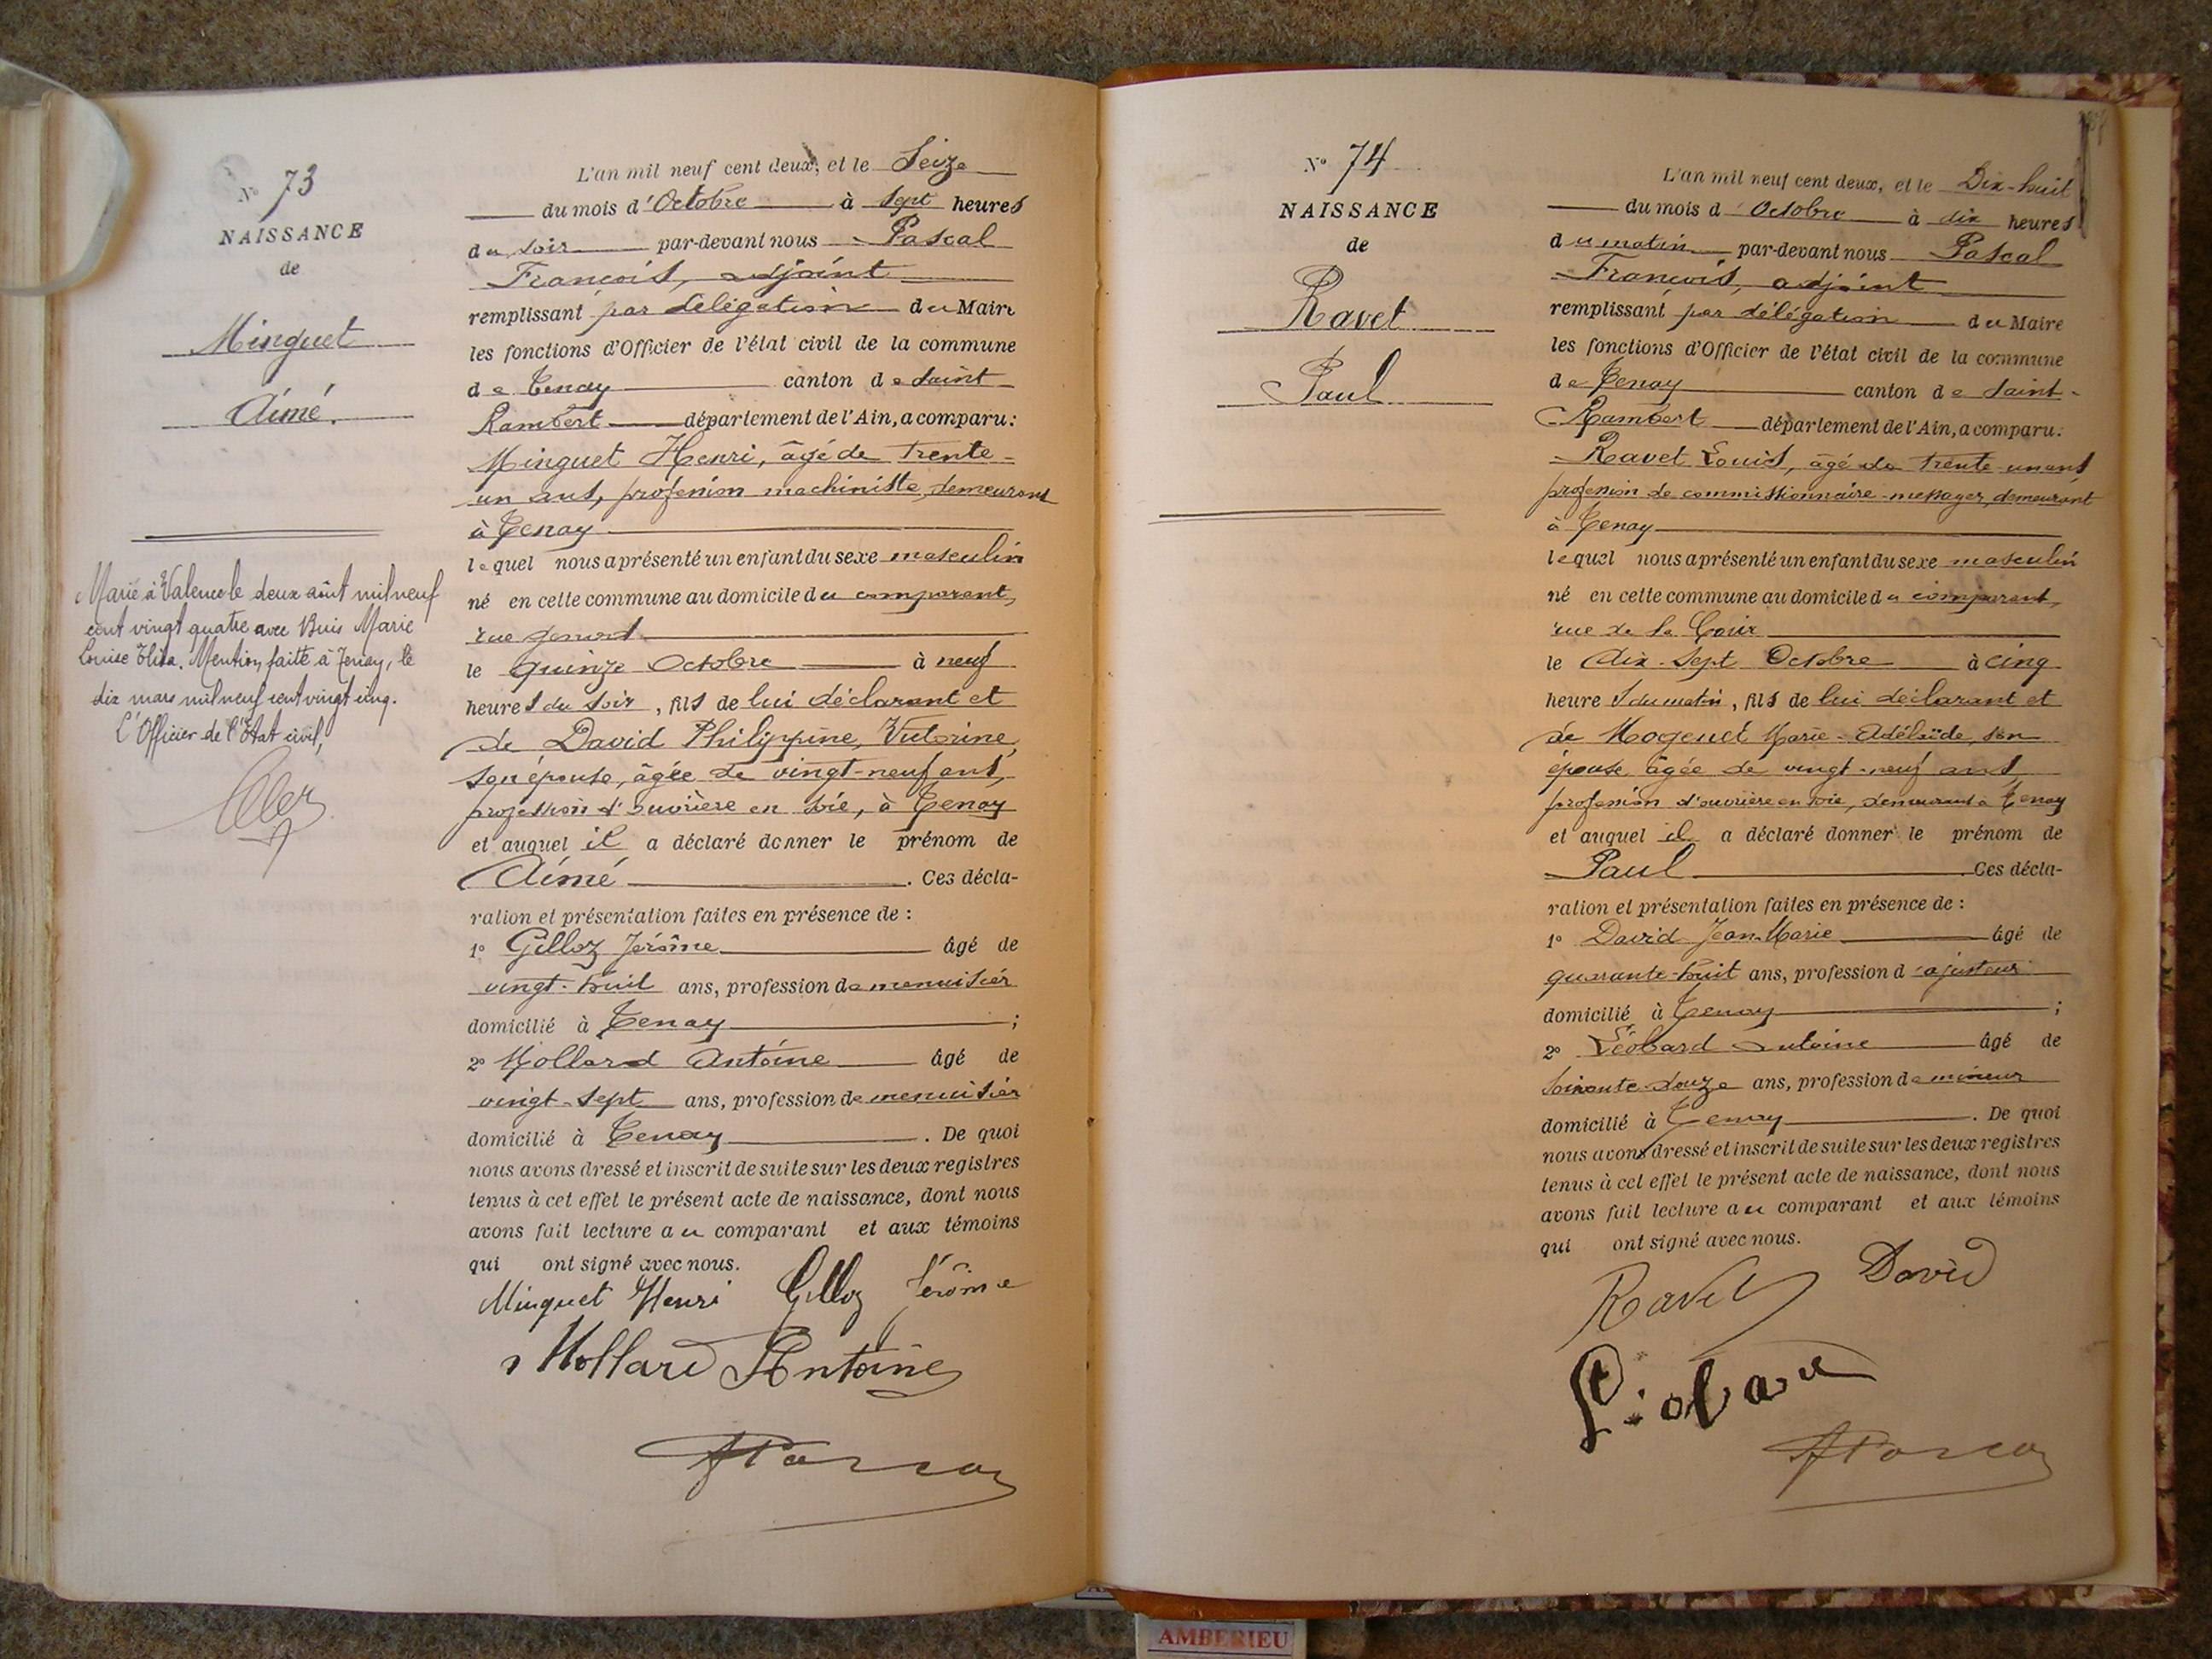 N° 73
NAISSANCE
de
Minguet
Aimé.
Marié à Valence le deux août mil neuf
cent vingt quatre avec Buis Marie
Louise Elisa. Mention faite à Tenay, le
dix mars mil neuf cent vingt cinq.
L'Officier de l'Etat civil,
L'an mil neuf cent deux, et le Seize
du mois d'Octobre à sept heures
du soir par-devant nous Pascal
François, adjoint
remplissant par délégation du Maire
les fonctions d'Officier de l'état civil de la commune
de Tenay canton de Saint-
Rambert département de l'Ain, a comparu:
Minguet Henri, âgé de trente-
un ans, profession machiniste, demeurant
à Tenay
lequel nous a présenté un enfant du sexe masculin
né en cette commune au domicile du comparant,
rue
le quinze Octobre à neuf
heures du soir, fils de lui déclarant et
de David Philippine, Victorine,
son épouse, âgée de vingt-neuf ans,
profession d'ouvrière en soie, à Tenay
et auquel il a déclaré donner le prénom de
Aimé. Ces décla-
ration et présentation faites en présence de :
1° Gilloz Jérôme âgé de
vingt-huit ans, profession de menuisier
domicilié à Tenay ;
2° Mollard Antoine âgé de
vingt-sept ans, profession de menuisier
domicilié à Tenay. De quoi
nous avons dressé et inscrit de suite sur les deux registres
tenus à cet effet le présent acte de naissance, dont nous
avons fait lecture au comparant et aux témoins
qui ont signé avec nous.
Minguet Henri Gilloz Jérôme
Mollard Antoine
N° 74
NAISSANCE
de
Ravet
Paul
L'an mil neuf cent deux, et le Dix-huit
du mois d'Octobre à dix heures
du matin par-devant nous Pascal
François, adjoint
remplissant par délégation du Maire
les fonctions d'Officier de l'état civil de la commune
de Tenay canton de Saint-
Rambert département de l'Ain, a comparu:
Ravet Louis, âgé de trente-un ans,
profession de commissionnaire-messager, demeurant
à Tenay
lequel nous a présenté un enfant du sexe masculin
né en cette commune au domicile du comparant,
rue de la
le dix-sept Octobre à cinq
heures du matin, fils de lui déclarant et
de Mogenet Marie-Adélaïde, son
épouse, âgée de vingt-neuf ans,
profession d'ouvrière en soie, demeurant à Tenay
et auquel il a déclaré donner le prénom de
Paul. Ces décla-
ration et présentation faites en présence de :
1° David Jean-Marie âgé de
quarante-huit ans, profession d'ajusteur
domicilié à Tenay ;
2° Léobard Antoine âgé de
soixante-douze ans, profession de mineur
domicilié à Tenay. De quoi
nous avons dressé et inscrit de suite sur les deux registres
tenus à cet effet le présent acte de naissance, dont nous
avons fait lecture au comparant et aux témoins
qui ont signé avec nous.
Ravet David
AMBERIEU